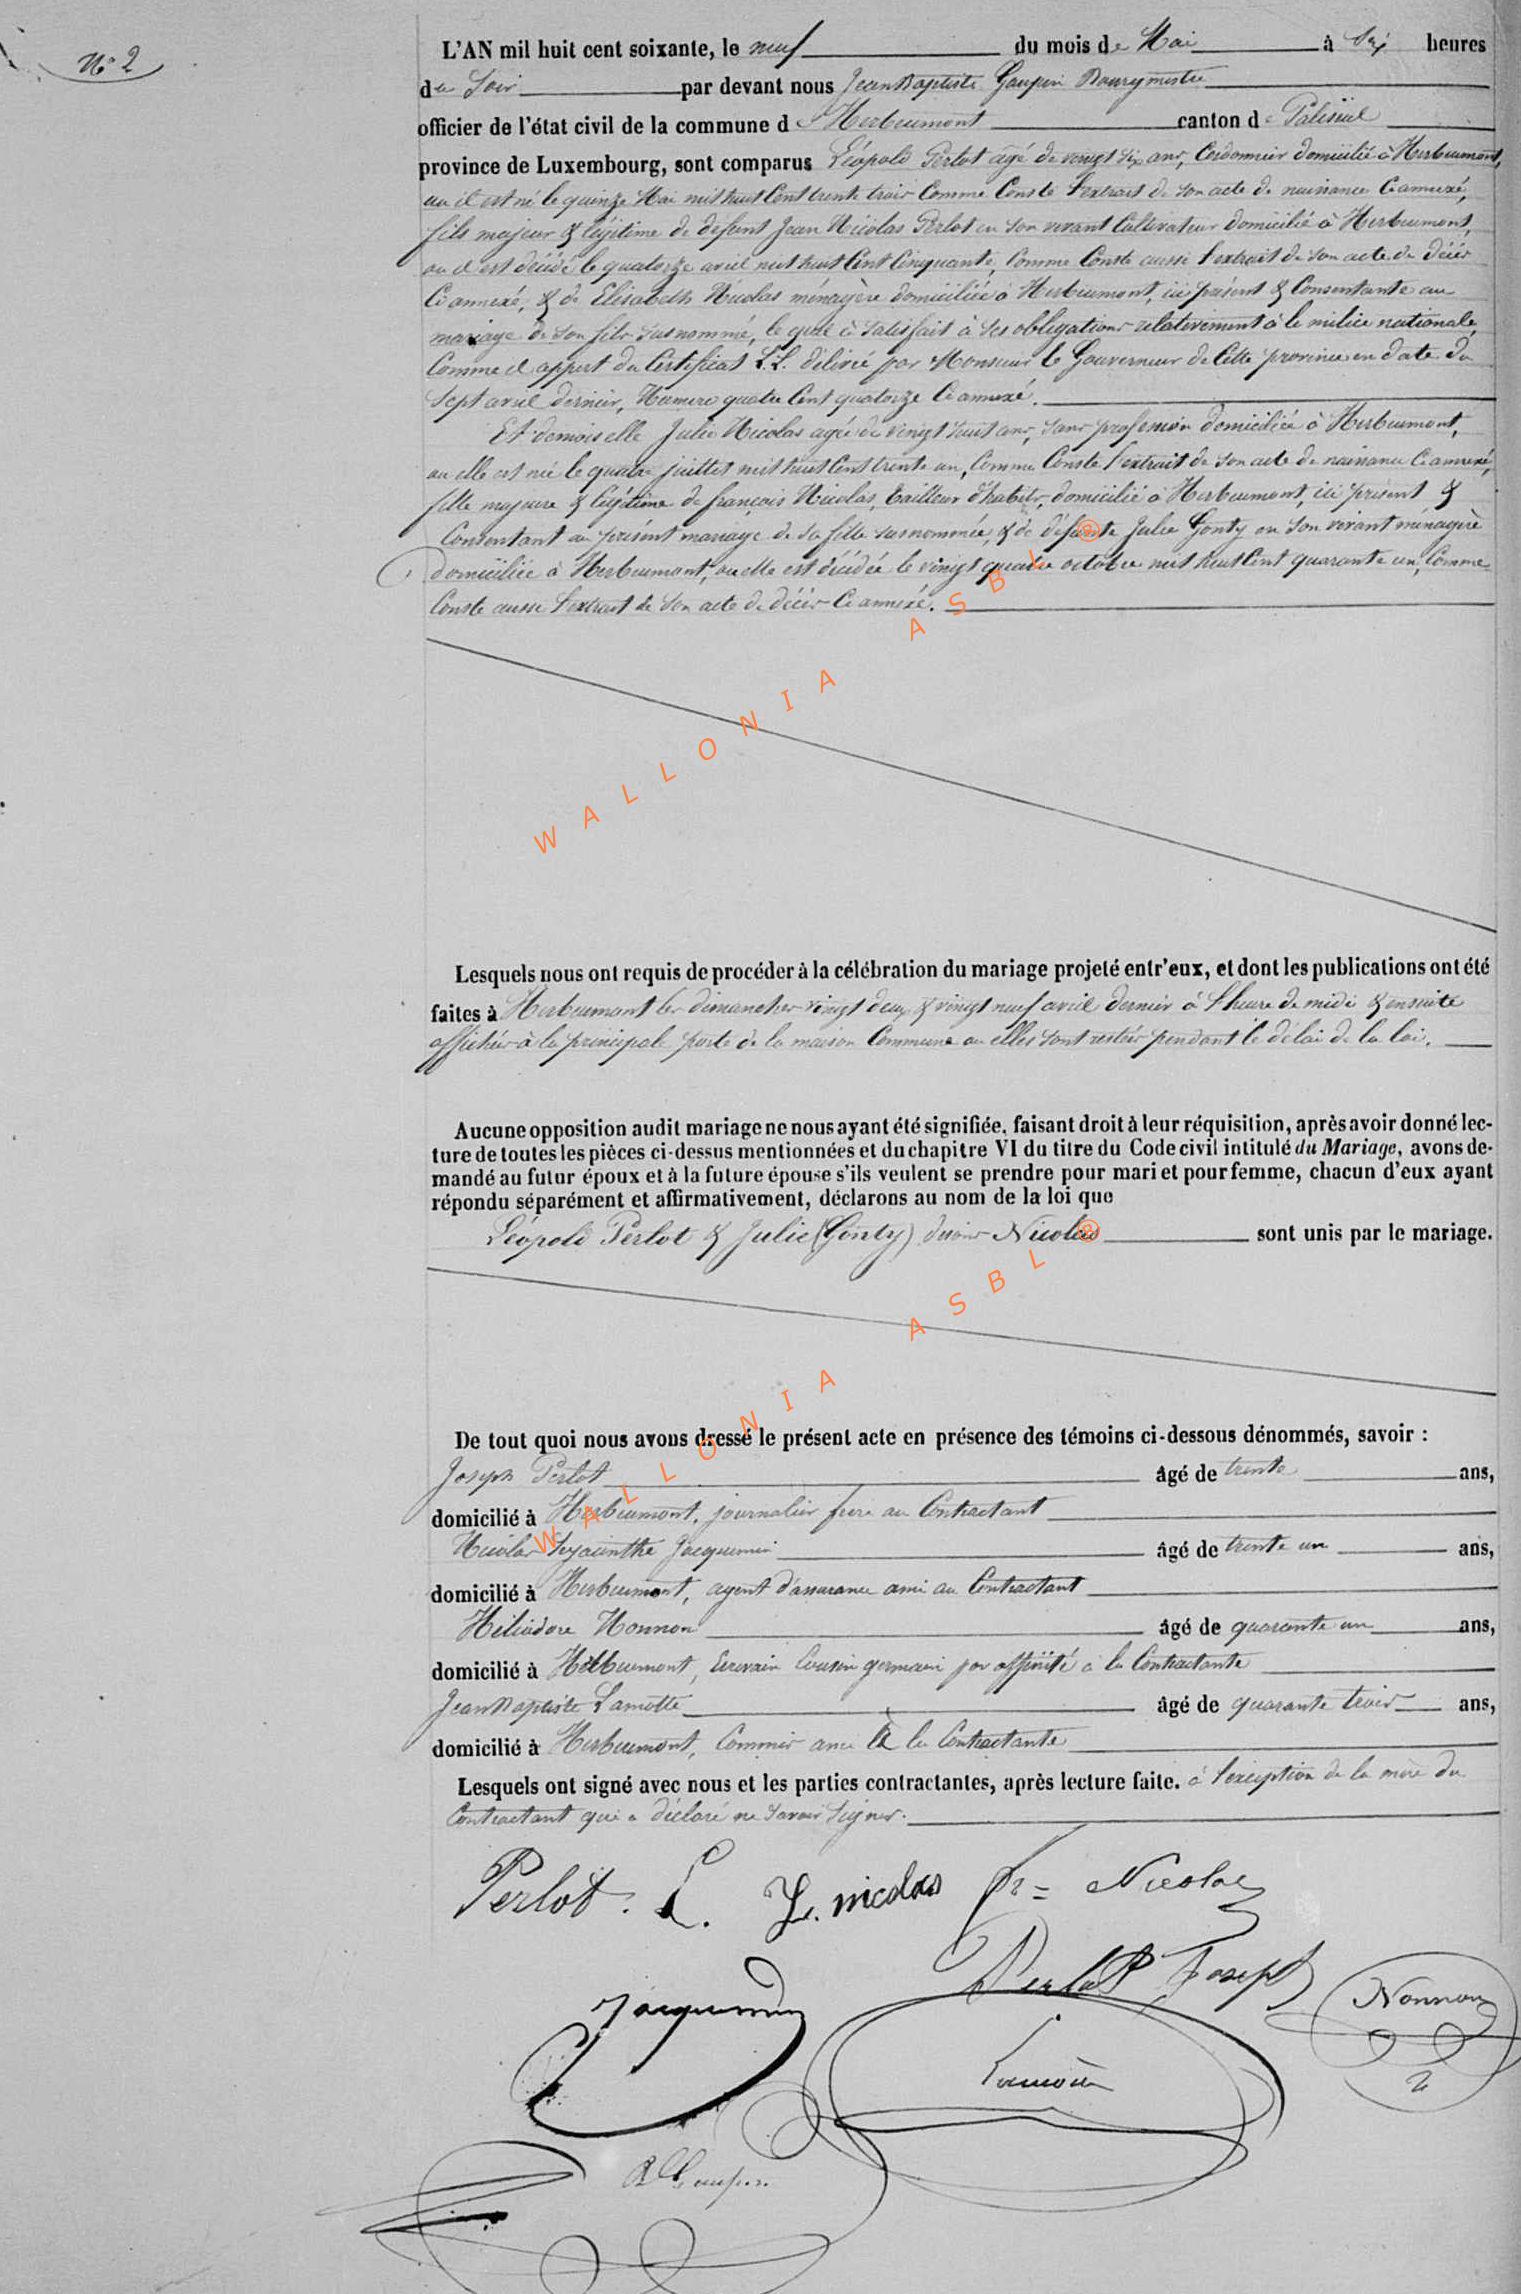 N° 2
L'AN mil huit cent soixante, le neuf du mois de Mai à Six heures
du Soir par devant nous Jean Baptiste Goupin Bourgmestre
officier de l'état civil de la commune d'Herbeumont canton de Paliseul
province de Luxembourg, sont comparus Léopold Perlot âgé de vingt six ans, Cordonnier domicilié à Herbeumont,
ou il est né le quinze Mai mil huit Cent trente trois Comme Conste l'extrait de son acte de naissance Ci annexé,
fils majeur & légitime de défunt Jean Nicolas Perlot en son vivant Cultivateur domicilié à Herbeumont,
ou il est décédé le quatorze avril mil huit Cent Cinquante, Comme Conste aussi l'extrait de son acte de décès
Ci annexé, & de Elisabeth Nicolas ménagère domiciliée à Herbeumont, ici présent & Consentante au
mariage de son fils susnommé, le quel à satisfait à ses obligations relativement à le milice nationale,
Comme il appert du Certificat L.L. délivré par Monsieur le Gouverneur de Cette province en date du
sept avril dernier, Numero quatre Cent quatorze Ci annexé.
Et demoiselle Julie Nicolas agée de vingt huit ans, sans profession domiciliée à Herbeumont,
ou elle est née le quatre juillet mil huit Cent trente un, Comme Conste l'extrait de son acte de naissance Ci annexé,
fille majeure & légitime de françois Nicolas, tailleur d'habits, domicilié à Herbeumont, ici présent &
Consentant au présent mariage de sa fille susnommée, & de défunte Julie Gonty en son vivant ménagère
domiciliée à Herbeumont, ou elle est décédée le vingt quatre octobre mil huit Cent quarante un, Comme
Conste aussi l'extrait de son acte de décès Ci annexé.
WALLONIA ASBL ®
Lesquels nous ont requis de procéder à la célébration du mariage projeté entr'eux, et dont les publications ont été
faites à Herbeumont les dimanches vingt deux & vingt neuf avril dernier à l'heure de midi & ensuite
affichées à la principale porte de la maison Commune ou elles sont restées pendant le délai de la loi.
Aucune opposition audit mariage ne nous ayant été signifiée, faisant droit à leur réquisition, après avoir donné lec-
ture de toutes les pièces ci-dessus mentionnées et du chapitre VI du titre du Code civil intitulé du Mariage, avons de-
mandé au futur époux et à la future épouse s'ils veulent se prendre pour mari et pour femme, chacun d'eux ayant
répondu séparément et affirmativement, déclarons au nom de la loi que
Léopold Perlot & Julie (Gonty) disons Nicolas sont unis par le mariage.
WALLONIA ASBL ®
De tout quoi nous avons dressé le présent acte en présence des témoins ci-dessous dénommés, savoir :
Joseph Perlot âgé de trente ans,
domicilié à Herbeumont, journalier frere au Contractant
Nicolas hyacinthe Jacquemin âgé de trente un ans,
domicilié à Herbeumont, agent d'assurance ami au Contractant
Héliodore Nonnon âgé de quarante un ans,
domicilié à Herbeumont, Ecrivain Cousin germain par affinité à la Contractante
Jean Baptiste Lamotte âgé de quarante trois ans,
domicilié à Herbeumont, Commis ami à la Contractante
Lesquels ont signé avec nous et les parties contractantes, après lecture faite. à l'exception de la mère du
Contractant qui a déclaré ne savoir Signer.
Perlot. L. J. nicolas fr = Nicolas
Perlot Joseph
Nonnon
Jacquemin
Lamotte